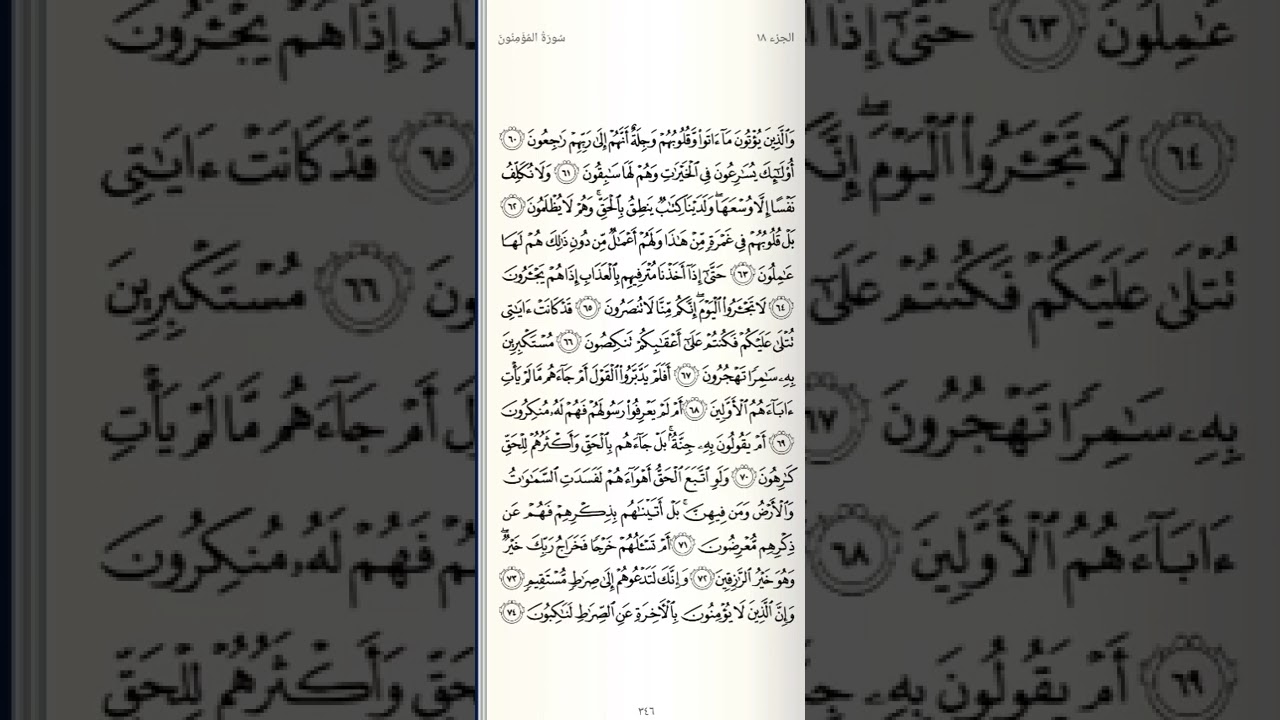 الجزء ١٨
سُورَةُ المُؤْمِنُونَ
وَٱلَّذِينَ يُؤْتُونَ مَآ ءَاتَوا۟ وَّقُلُوبُهُمْ وَجِلَةٌ أَنَّهُمْ إِلَىٰ رَبِّهِمْ رَٰجِعُونَ ٦٠
أُو۟لَٰٓئِكَ يُسَٰرِعُونَ فِى ٱلْخَيْرَٰتِ وَهُمْ لَهَا سَٰبِقُونَ ٦١ وَلَا نُكَلِّفُ
نَفْسًا إِلَّا وُسْعَهَا ۖ وَلَدَيْنَا كِتَٰبٌ يَنطِقُ بِٱلْحَقِّ ۚ وَهُمْ لَا يُظْلَمُونَ ٦٢
بَلْ قُلُوبُهُمْ فِى غَمْرَةٍ مِّنْ هَٰذَا وَلَهُمْ أَعْمَٰلٌ مِّن دُونِ ذَٰلِكَ هُمْ لَهَا
عَٰمِلُونَ ٦٣ حَتَّىٰٓ إِذَآ أَخَذْنَا مُتْرَفِيهِم بِٱلْعَذَابِ إِذَا هُمْ يَجْـَٔرُونَ
٦٤ لَا تَجْـَٔرُوا۟ ٱلْيَوْمَ ۖ إِنَّكُم مِّنَّا لَا تُنصَرُونَ ٦٥ قَدْ كَانَتْ ءَايَٰتِى
تُتْلَىٰ عَلَيْكُمْ فَكُنتُمْ عَلَىٰٓ أَعْقَٰبِكُمْ تَنكِصُونَ ٦٦ مُسْتَكْبِرِينَ
بِهِۦ سَٰمِرًا تَهْجُرُونَ ٦٧ أَفَلَمْ يَدَّبَّرُوا۟ ٱلْقَوْلَ أَمْ جَآءَهُم مَّا لَمْ يَأْتِ
ءَابَآءَهُمُ ٱلْأَوَّلِينَ ٦٨ أَمْ لَمْ يَعْرِفُوا۟ رَسُولَهُمْ فَهُمْ لَهُۥ مُنكِرُونَ
٦٩ أَمْ يَقُولُونَ بِهِۦ جِنَّةٌۢ ۚ بَلْ جَآءَهُم بِٱلْحَقِّ وَأَكْثَرُهُمْ لِلْحَقِّ
كَٰرِهُونَ ٧٠ وَلَوِ ٱتَّبَعَ ٱلْحَقُّ أَهْوَآءَهُمْ لَفَسَدَتِ ٱلسَّمَٰوَٰتُ
وَٱلْأَرْضُ وَمَن فِيهِنَّ ۚ بَلْ أَتَيْنَٰهُم بِذِكْرِهِمْ فَهُمْ عَن
ذِكْرِهِم مُّعْرِضُونَ ٧١ أَمْ تَسْـَٔلُهُمْ خَرْجًا فَخَرَاجُ رَبِّكَ خَيْرٌ ۖ
وَهُوَ خَيْرُ ٱلرَّٰزِقِينَ ٧٢ وَإِنَّكَ لَتَدْعُوهُمْ إِلَىٰ صِرَٰطٍ مُّسْتَقِيمٍ ٧٣
وَإِنَّ ٱلَّذِينَ لَا يُؤْمِنُونَ بِٱلْءَاخِرَةِ عَنِ ٱلصِّرَٰطِ لَنَٰكِبُونَ ٧٤
٣٤٦